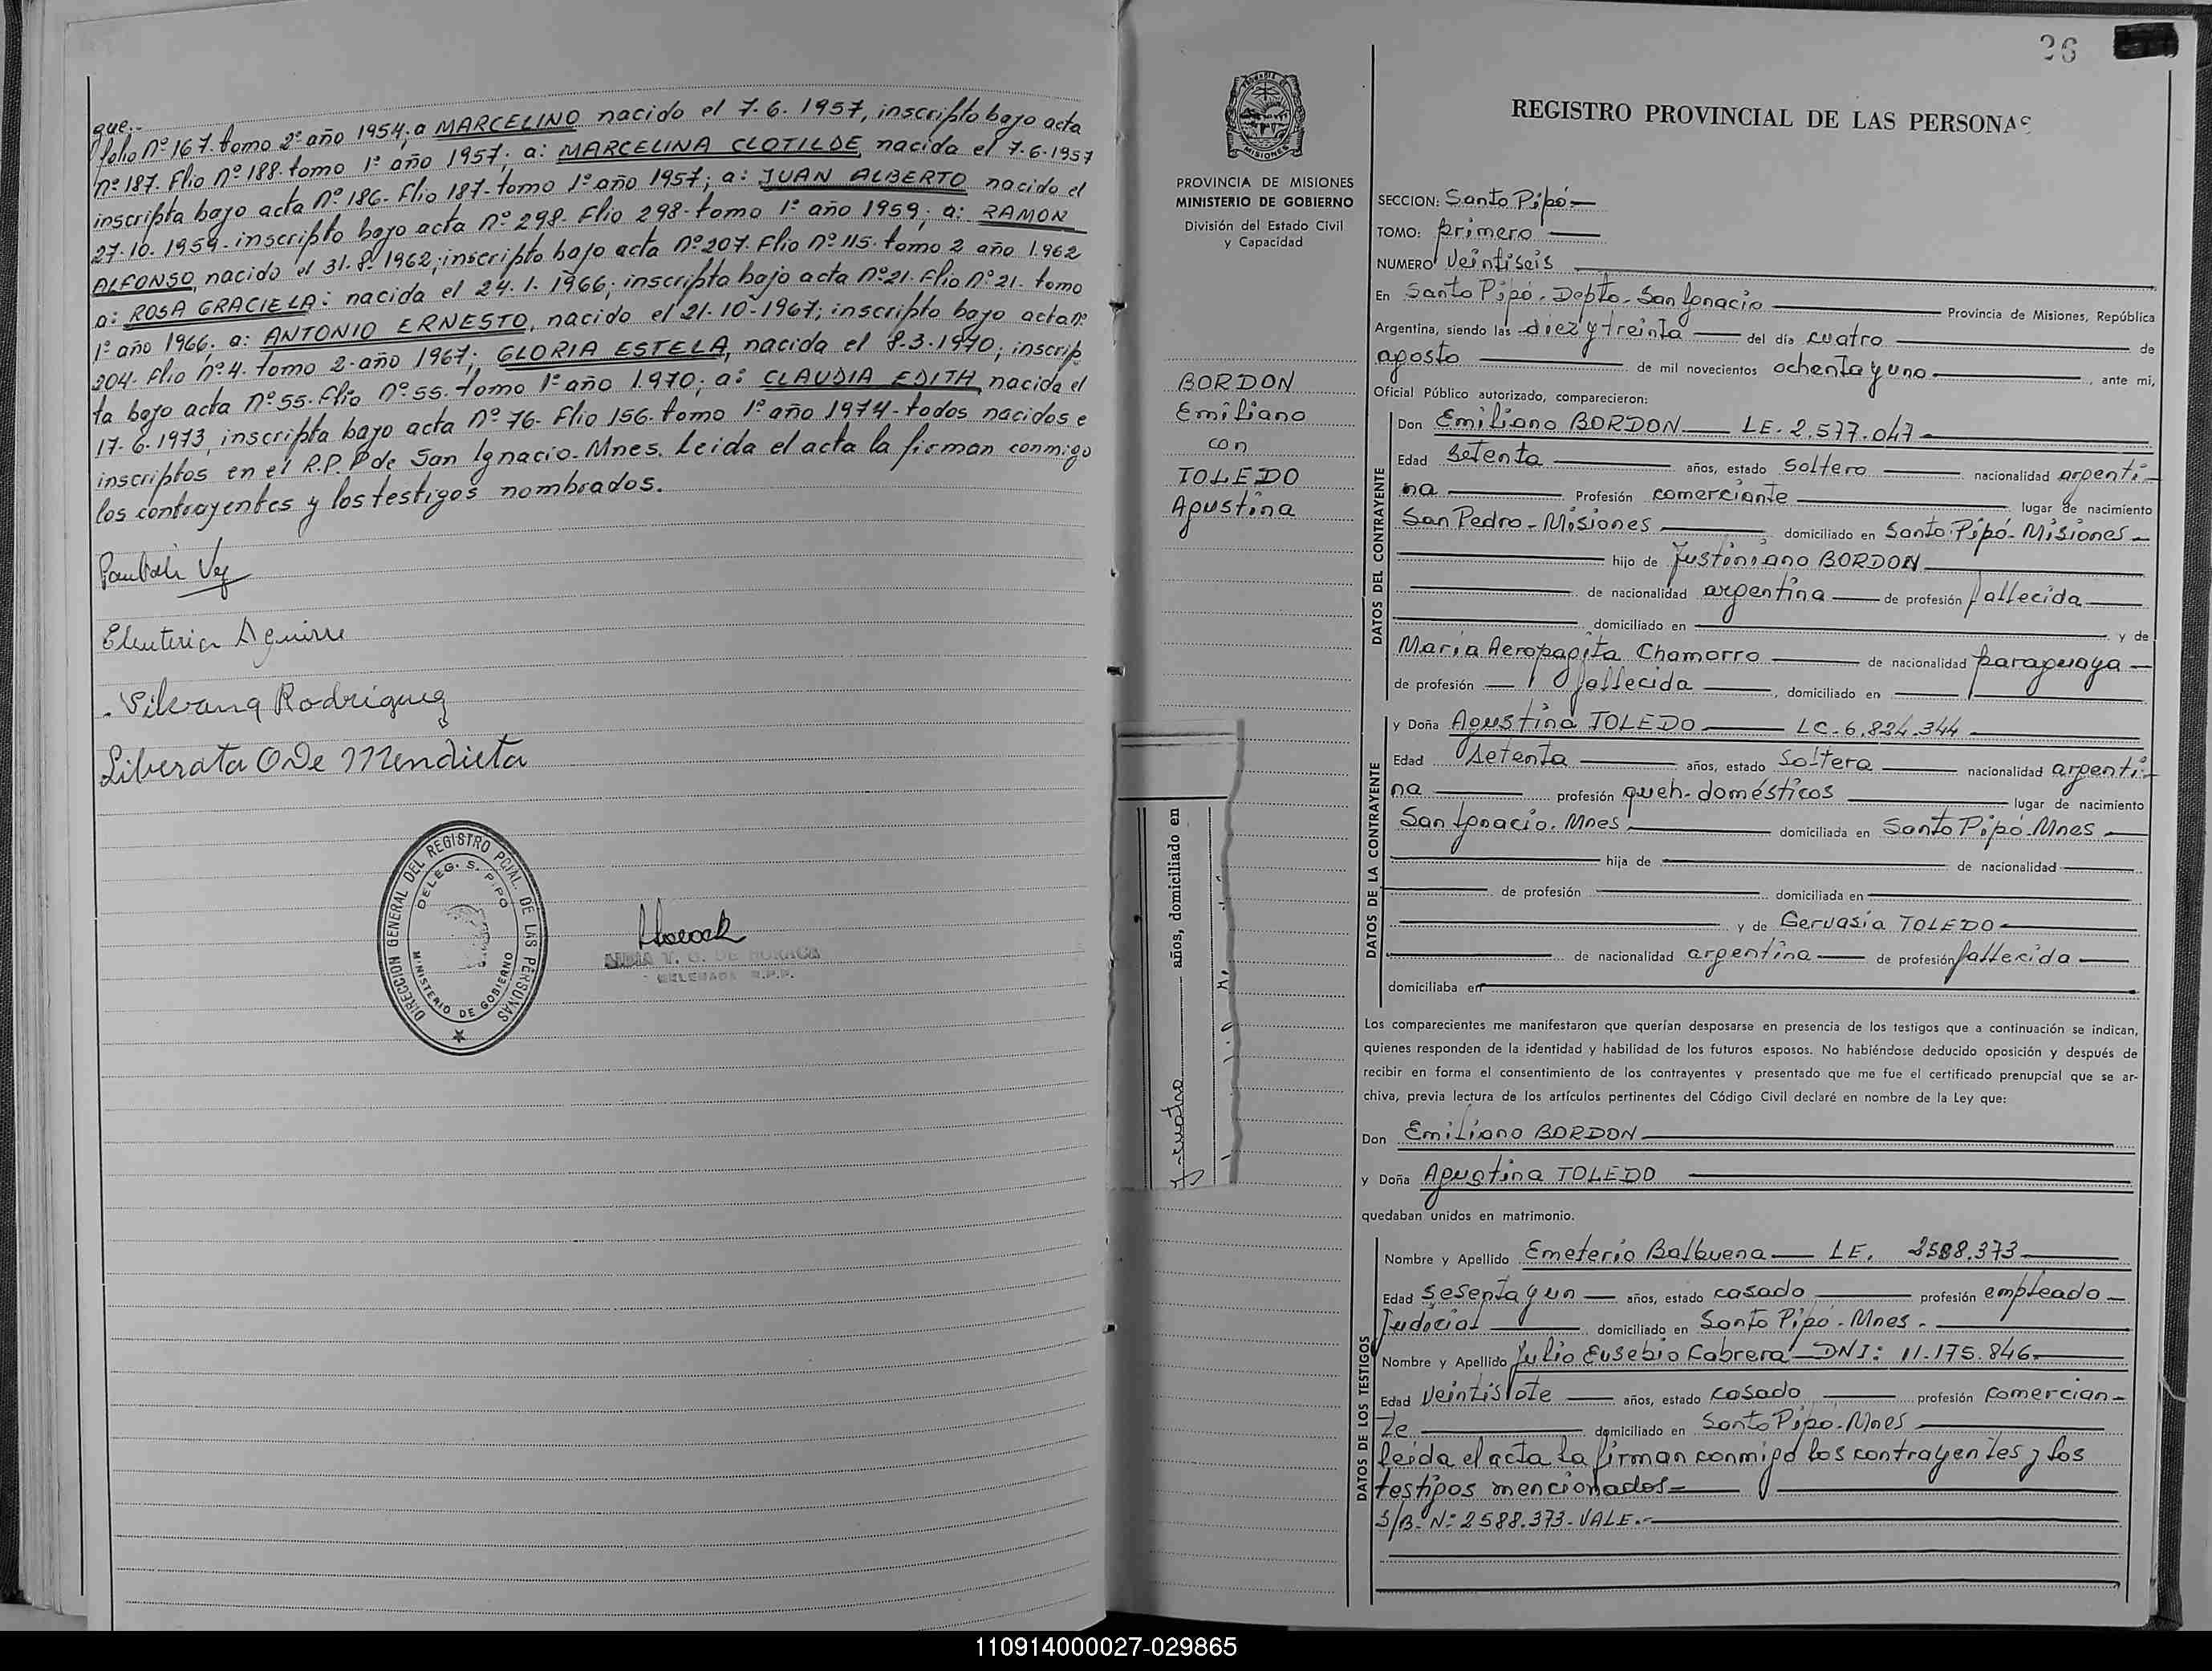 que.-
folio Nº 167. tomo 2º año 1954; a MARCELINO nacido el 7.6.1957, inscripto bajo acta
nº 187. Flio Nº 188. tomo 1º año 1957; a: MARCELINA CLOTILDE, nacida el 7.6.1957
inscripta bajo acta Nº 186. Flio 187. tomo 1º año 1957; a: JUAN ALBERTO nacido el
27.10.1959. inscripto bajo acta Nº 298. Flio 298. tomo 1º año 1959; a: RAMON
ALFONSO, nacido el 31.8.1962; inscripto bajo acta Nº 207. Flio Nº 115. tomo 2 año 1.962
a: ROSA GRACIELA: nacida el 24.1.1966; inscripta bajo acta Nº 21. Flio Nº 21. tomo
1º año 1966; a: ANTONIO ERNESTO, nacido el 21-10-1967; inscripto bajo acta nº
204. Flio nº 4. tomo 2-año 1967; GLORIA ESTELA, nacida el 8.3.1970; inscrip
ta bajo acta Nº 55. Flio Nº 55. tomo 1º año 1.970; a: CLAUDIA EDITH, nacida el
17.6.1973, inscripta bajo acta Nº 76. Flio 156. tomo 1º año 1974 - todos nacidos e
inscriptos en el R.P.P de San Ignacio. Mnes. Leida el acta la firman conmigo
los contrayentes y los testigos nombrados.
Eleuteria Aguirre
Silvana Rodriguez
Liberata O De Mendieta
DIRECCION GENERAL DEL REGISTRO PCIAL. DE LAS PERSONAS
DELEG. S. PIPO
MINISTERIO DE GOBIERNO
DELEGADA R.P.P.
26
MISIONES
PROVINCIA DE MISIONES
MINISTERIO DE GOBIERNO
División del Estado Civil
y Capacidad
BORDON
Emiliano
con
TOLEDO
Agustina
años, domiciliado en
REGISTRO PROVINCIAL DE LAS PERSONAS
SECCION: Santo Pipó
TOMO: primero
NUMERO veintiseis
En Santo Pipó. Depto. San Ignacio Provincia de Misiones, República
Argentina, siendo las diez y treinta del día cuatro de
agosto de mil novecientos ochenta y uno, ante mi,
Oficial Público autorizado, comparecieron:
DATOS DEL CONTRAYENTE
Don Emiliano BORDON LE. 2.577.047
Edad Setenta años, estado Soltero nacionalidad argenti-
na Profesión comerciante lugar de nacimiento
San Pedro - Misiones domiciliado en Santo Pipó - Misiones
hijo de Justiniano BORDON
de nacionalidad argentina de profesión fallecida
domiciliado en y de
María Aeropagita Chamorro de nacionalidad paraguaya
de profesión fallecida, domiciliado en
DATOS DE LA CONTRAYENTE
y Doña Agustina TOLEDO LC. 6.824.344
Edad setenta años, estado Soltera nacionalidad argenti-
na profesión queh. domésticos lugar de nacimiento
San Ignacio. Mnes domiciliada en Santo Pipó. Mnes
hija de de nacionalidad
de profesión domiciliada en
y de Gervasia TOLEDO
de nacionalidad argentina de profesión fallecida
domiciliaba en
Los comparecientes me manifestaron que querían desposarse en presencia de los testigos que a continuación se indican,
quienes responden de la identidad y habilidad de los futuros esposos. No habiéndose deducido oposición y después de
recibir en forma el consentimiento de los contrayentes y presentado que me fue el certificado prenupcial que se ar-
chiva, previa lectura de los artículos pertinentes del Código Civil declaré en nombre de la Ley que:
Don Emiliano BORDON
y Doña Agustina TOLEDO
quedaban unidos en matrimonio.
DATOS DE LOS TESTIGOS
Nombre y Apellido Emeterio Balbuena LE. 2588.373
Edad Sesenta y un años, estado casado profesión empleado
Judicial domiciliado en Santo Pipó - Mnes.
Nombre y Apellido Julio Eusebio Cabrera DNI: 11.175.846
Edad veintisiote años, estado casado profesión comercian-
te domiciliado en Santo Pipó. Mnes
leida el acta la firman conmigo los contrayentes y los
testigos mencionados
S/B. Nº 2588.373 - VALE.-
110914000027-029865